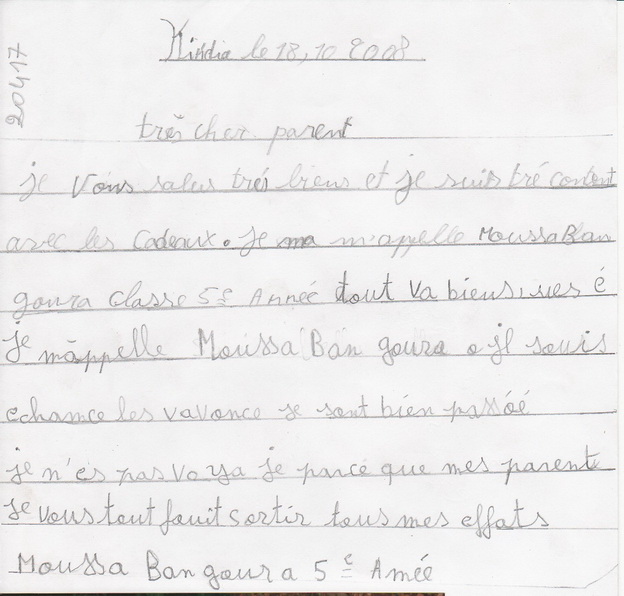 20417
Kindia le 18,10 2008
trĕs cher parent
je vous salus tréi biens et je suis tré content
avec les Cadeaux. Je ma m'appelle Moussa Ban
goura classe 5e Année tout va biens, é
je m'appelle Moussa Ban goura . jl souis
echance les vavonce se sont bien passóé
je n'és pas voya je parce que mes parente
Je vous tout fouit sortir tous mes effats
Moussa Ban goura 5e Amée